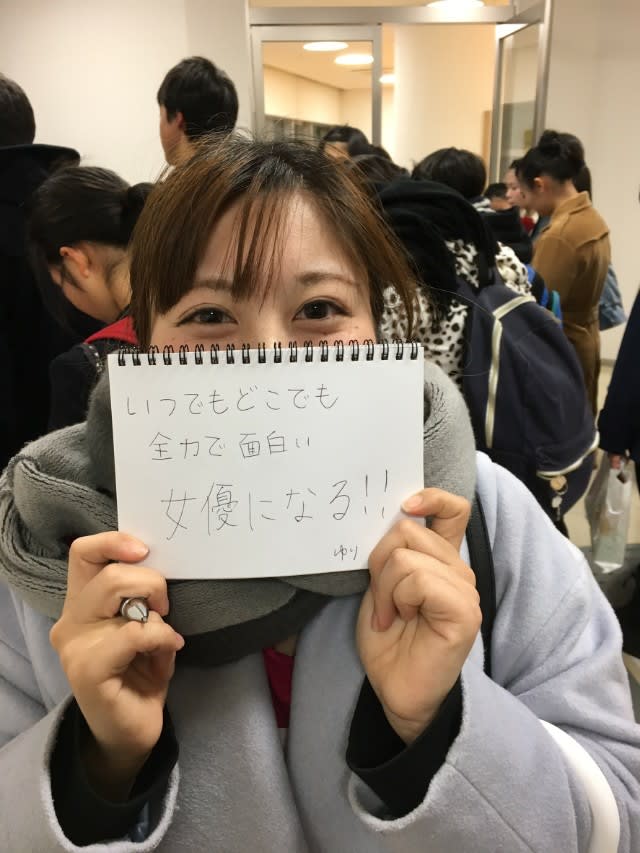 いつでもどこでも
全力で面白い
女優になる!!
ゆり